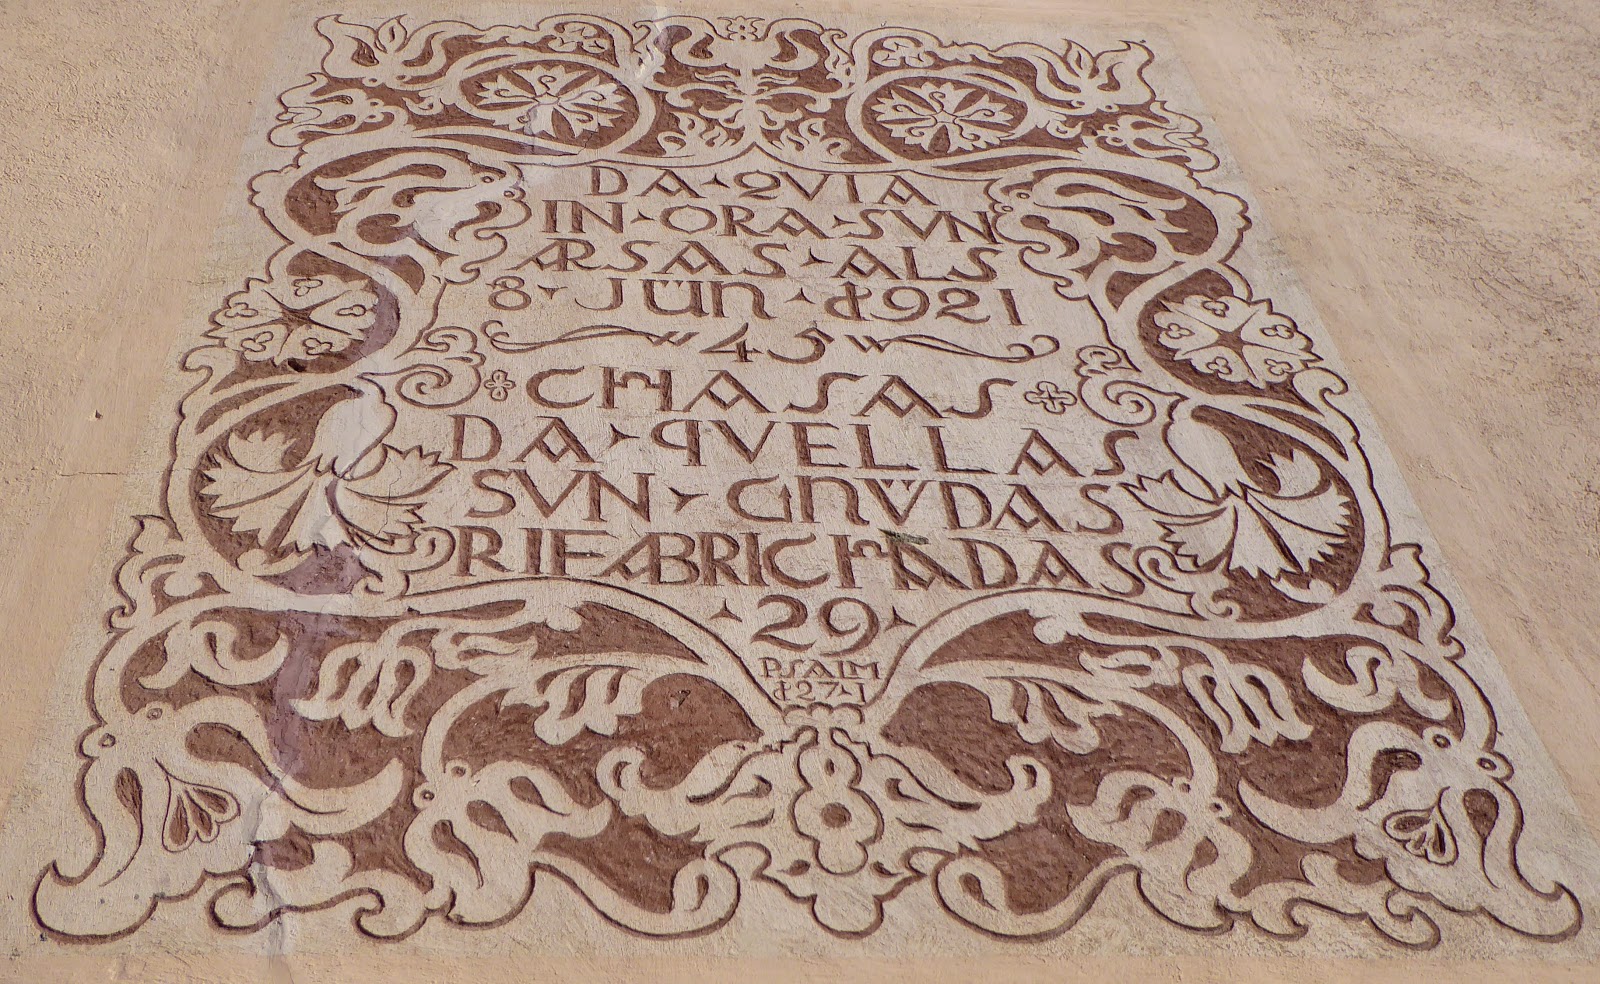 DA · QVIA
IN · ORA · SVN
ARSAS · ALS
8 · JÜN · 1921
45
CHASAS
DA · QVELLAS
SVN · GNV̈DAS
RIFABRICHADAS
· 29 ·
PSALM
127·1